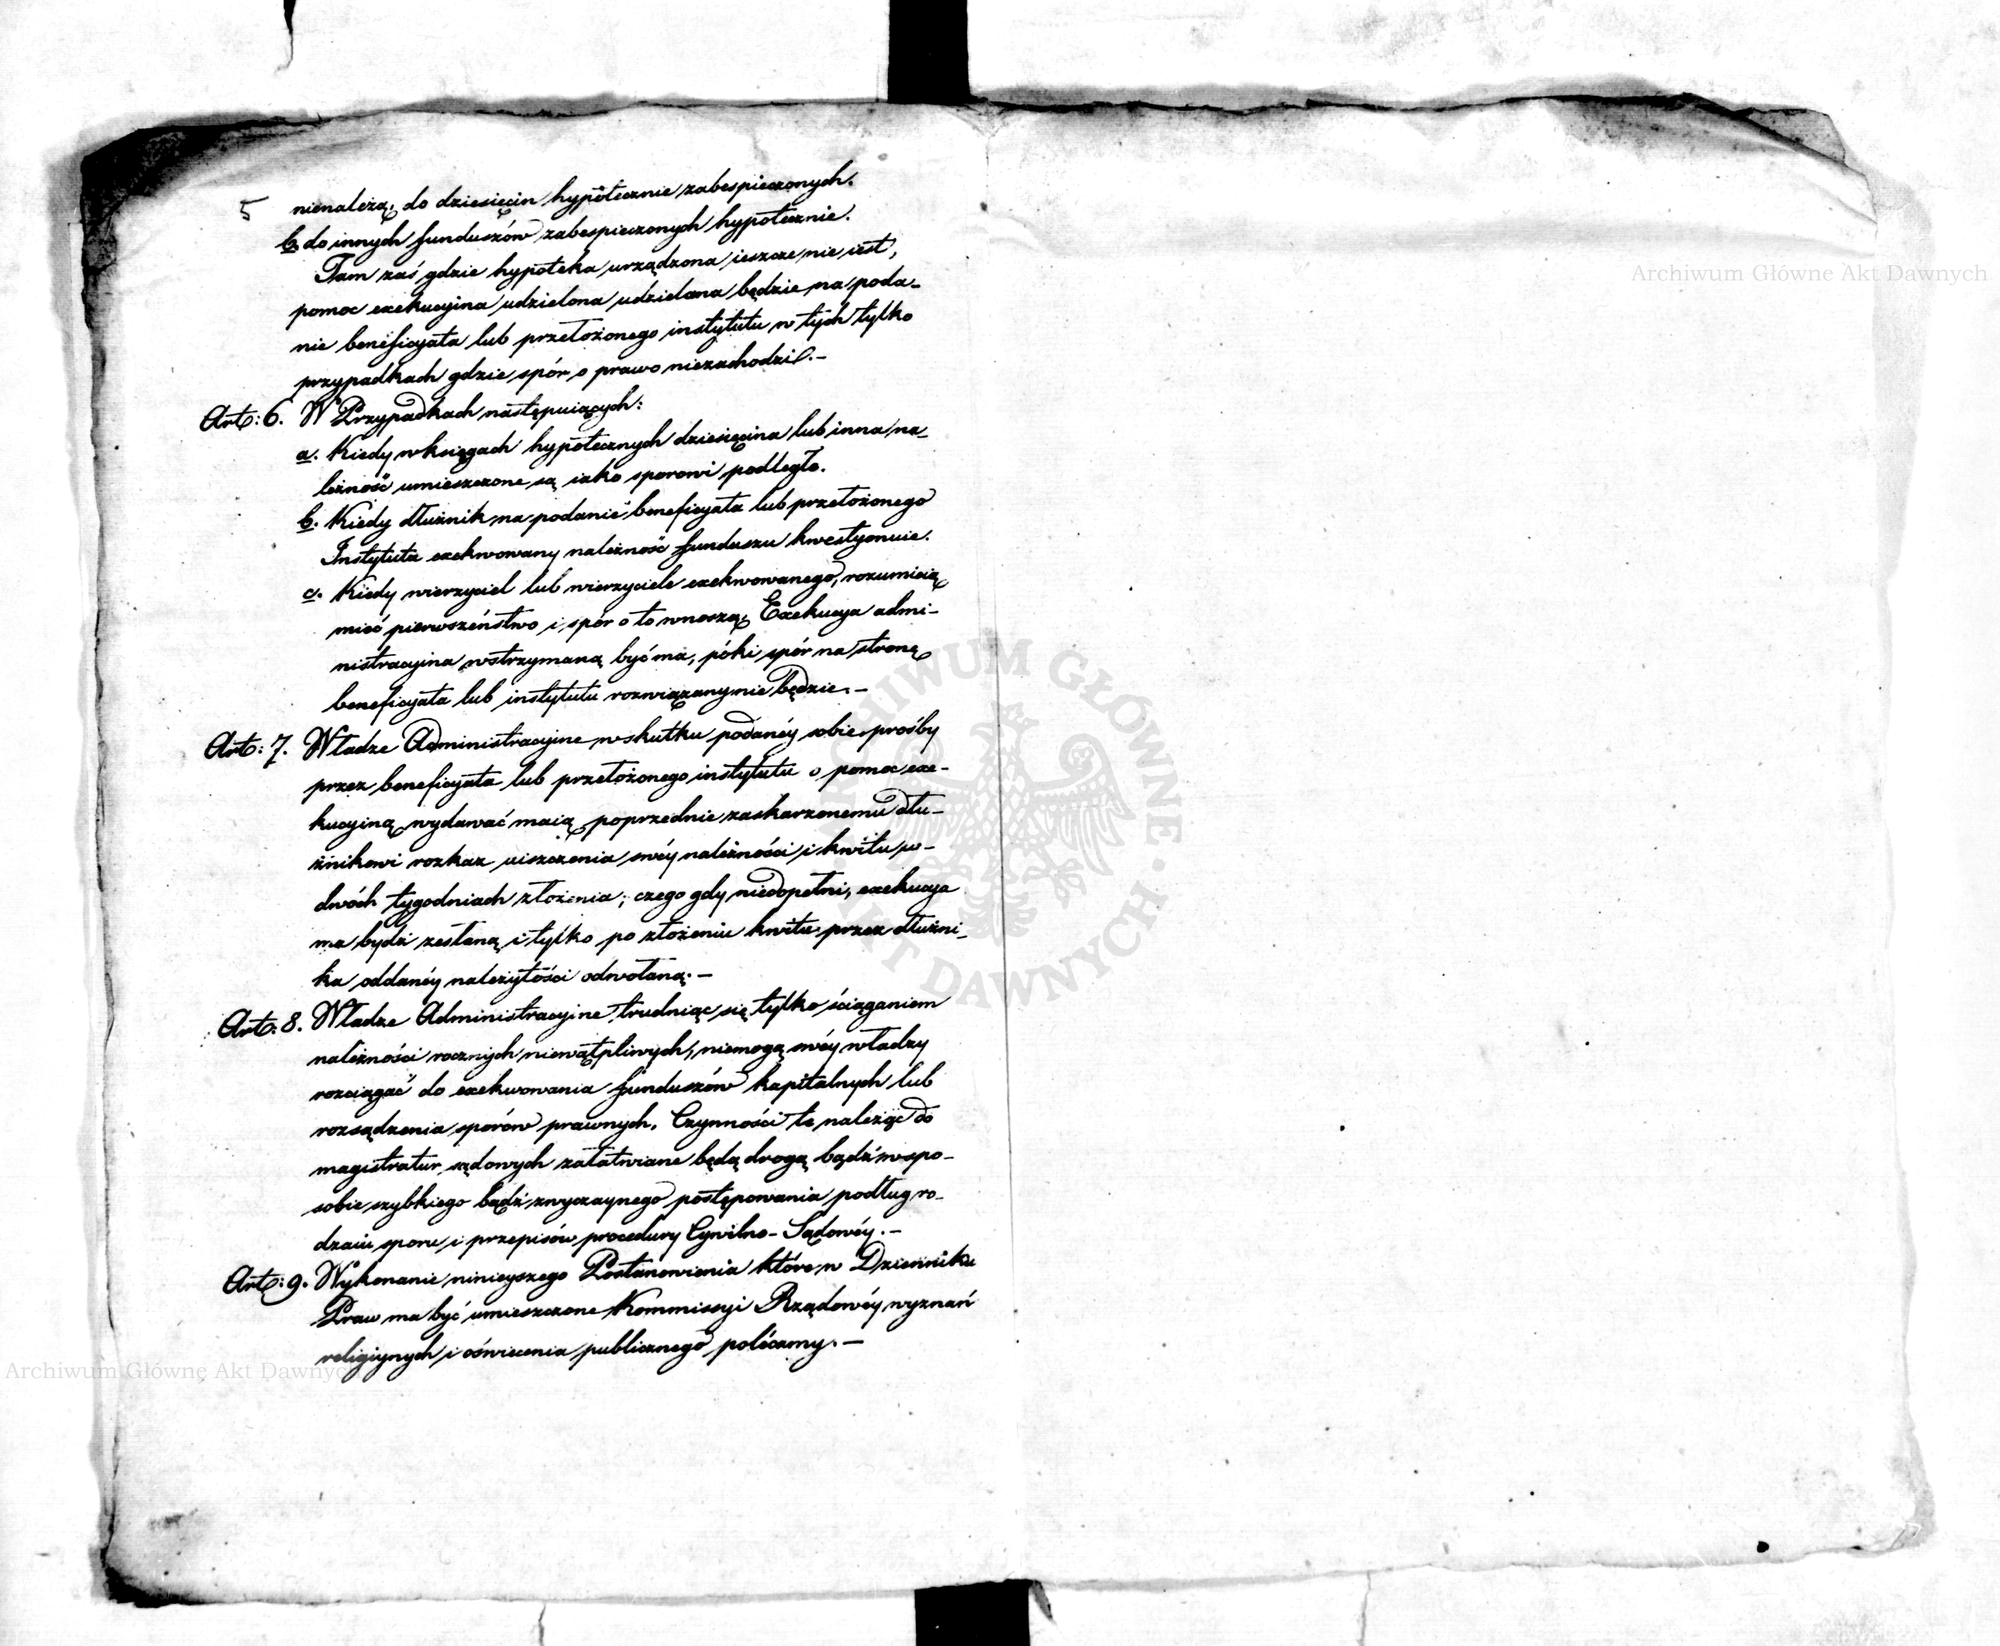 5
nienależą, do dziesięcin hypotecznie zabespieczonych.
b. do innych funduszów zabespieczonych hypotecznie.
Tam zaś gdzie hypoteka urządzona ieszcze nie iest,
pomoc exekucyina udzielona udzielana będzie na poda-
nie beneficyata lub przełożonego instytutu w tych tylko
przypadkach gdzie spór o prawo niezachodzi.-
Art: 6. W Przypadkach następuiących:
a. Kiedy w księgach hypotecznych dziesięcina lub inna na-
leżność umieszczone są iako sporowi podległe.
b. Kiedy dłużnik na podanie beneficyata lub przełożonego
Instytuta exekwowany należność funduszu kwestyonuie.
c. Kiedy wierzyciel lub wierzyciele exekwowanego, rozumieią
mieć pierwszeństwo i spór o to wnoszą, Exekucya admi-
nistracyina wstrzymaną być ma, póki spór na stronę
beneficyata lub instytutu rozwiązany nie będzie.-
Art: 7. Władze Administracyine w skutku podanéy sobie prośby
przez beneficyata lub przełożonego instytutu o pomoc exe-
kucyiną, wydawać maią poprzednie zaskarzonemu dłu-
żnikowi rozkaz uiszczenia swéy należności i kwitu w
dwóch tygodniach złożenia; czego gdy niedopełni, exekucya
ma bydź zesłaną i tylko po złożeniu kwitu przez dłużni-
ka oddanéy należytości odwołaną.-
Art: 8. Władze Administracyine trudniąc się tylko ściąganiem
należności rocznych niewątpliwych, niemogą swéy władzy
rozciągać do exekwowania funduszów kapitalnych lub
rozsądzenia sporów prawnych. Czynności te należąc do
magistratur sądowych załatwiane będą drogą bądź w spo-
sobie szybkiego bądź zwyczaynego postępowania podług ro-
dzaiu sporu i przepisów procedury Cywilno-Sądowéy.-
Art: 9. Wykonanie ninieyszego Postanowienia które w Dzienniku
Praw ma być umieszczone Kommissyi Rządowéy wyznań
religiynych i oświecenia publicznego polécamy.-
Archiwum Główne Akt Dawnych
Archiwum Główne Akt Dawnych
ARCHIWUM GŁÓWNE · AKT DAWNYCH ·